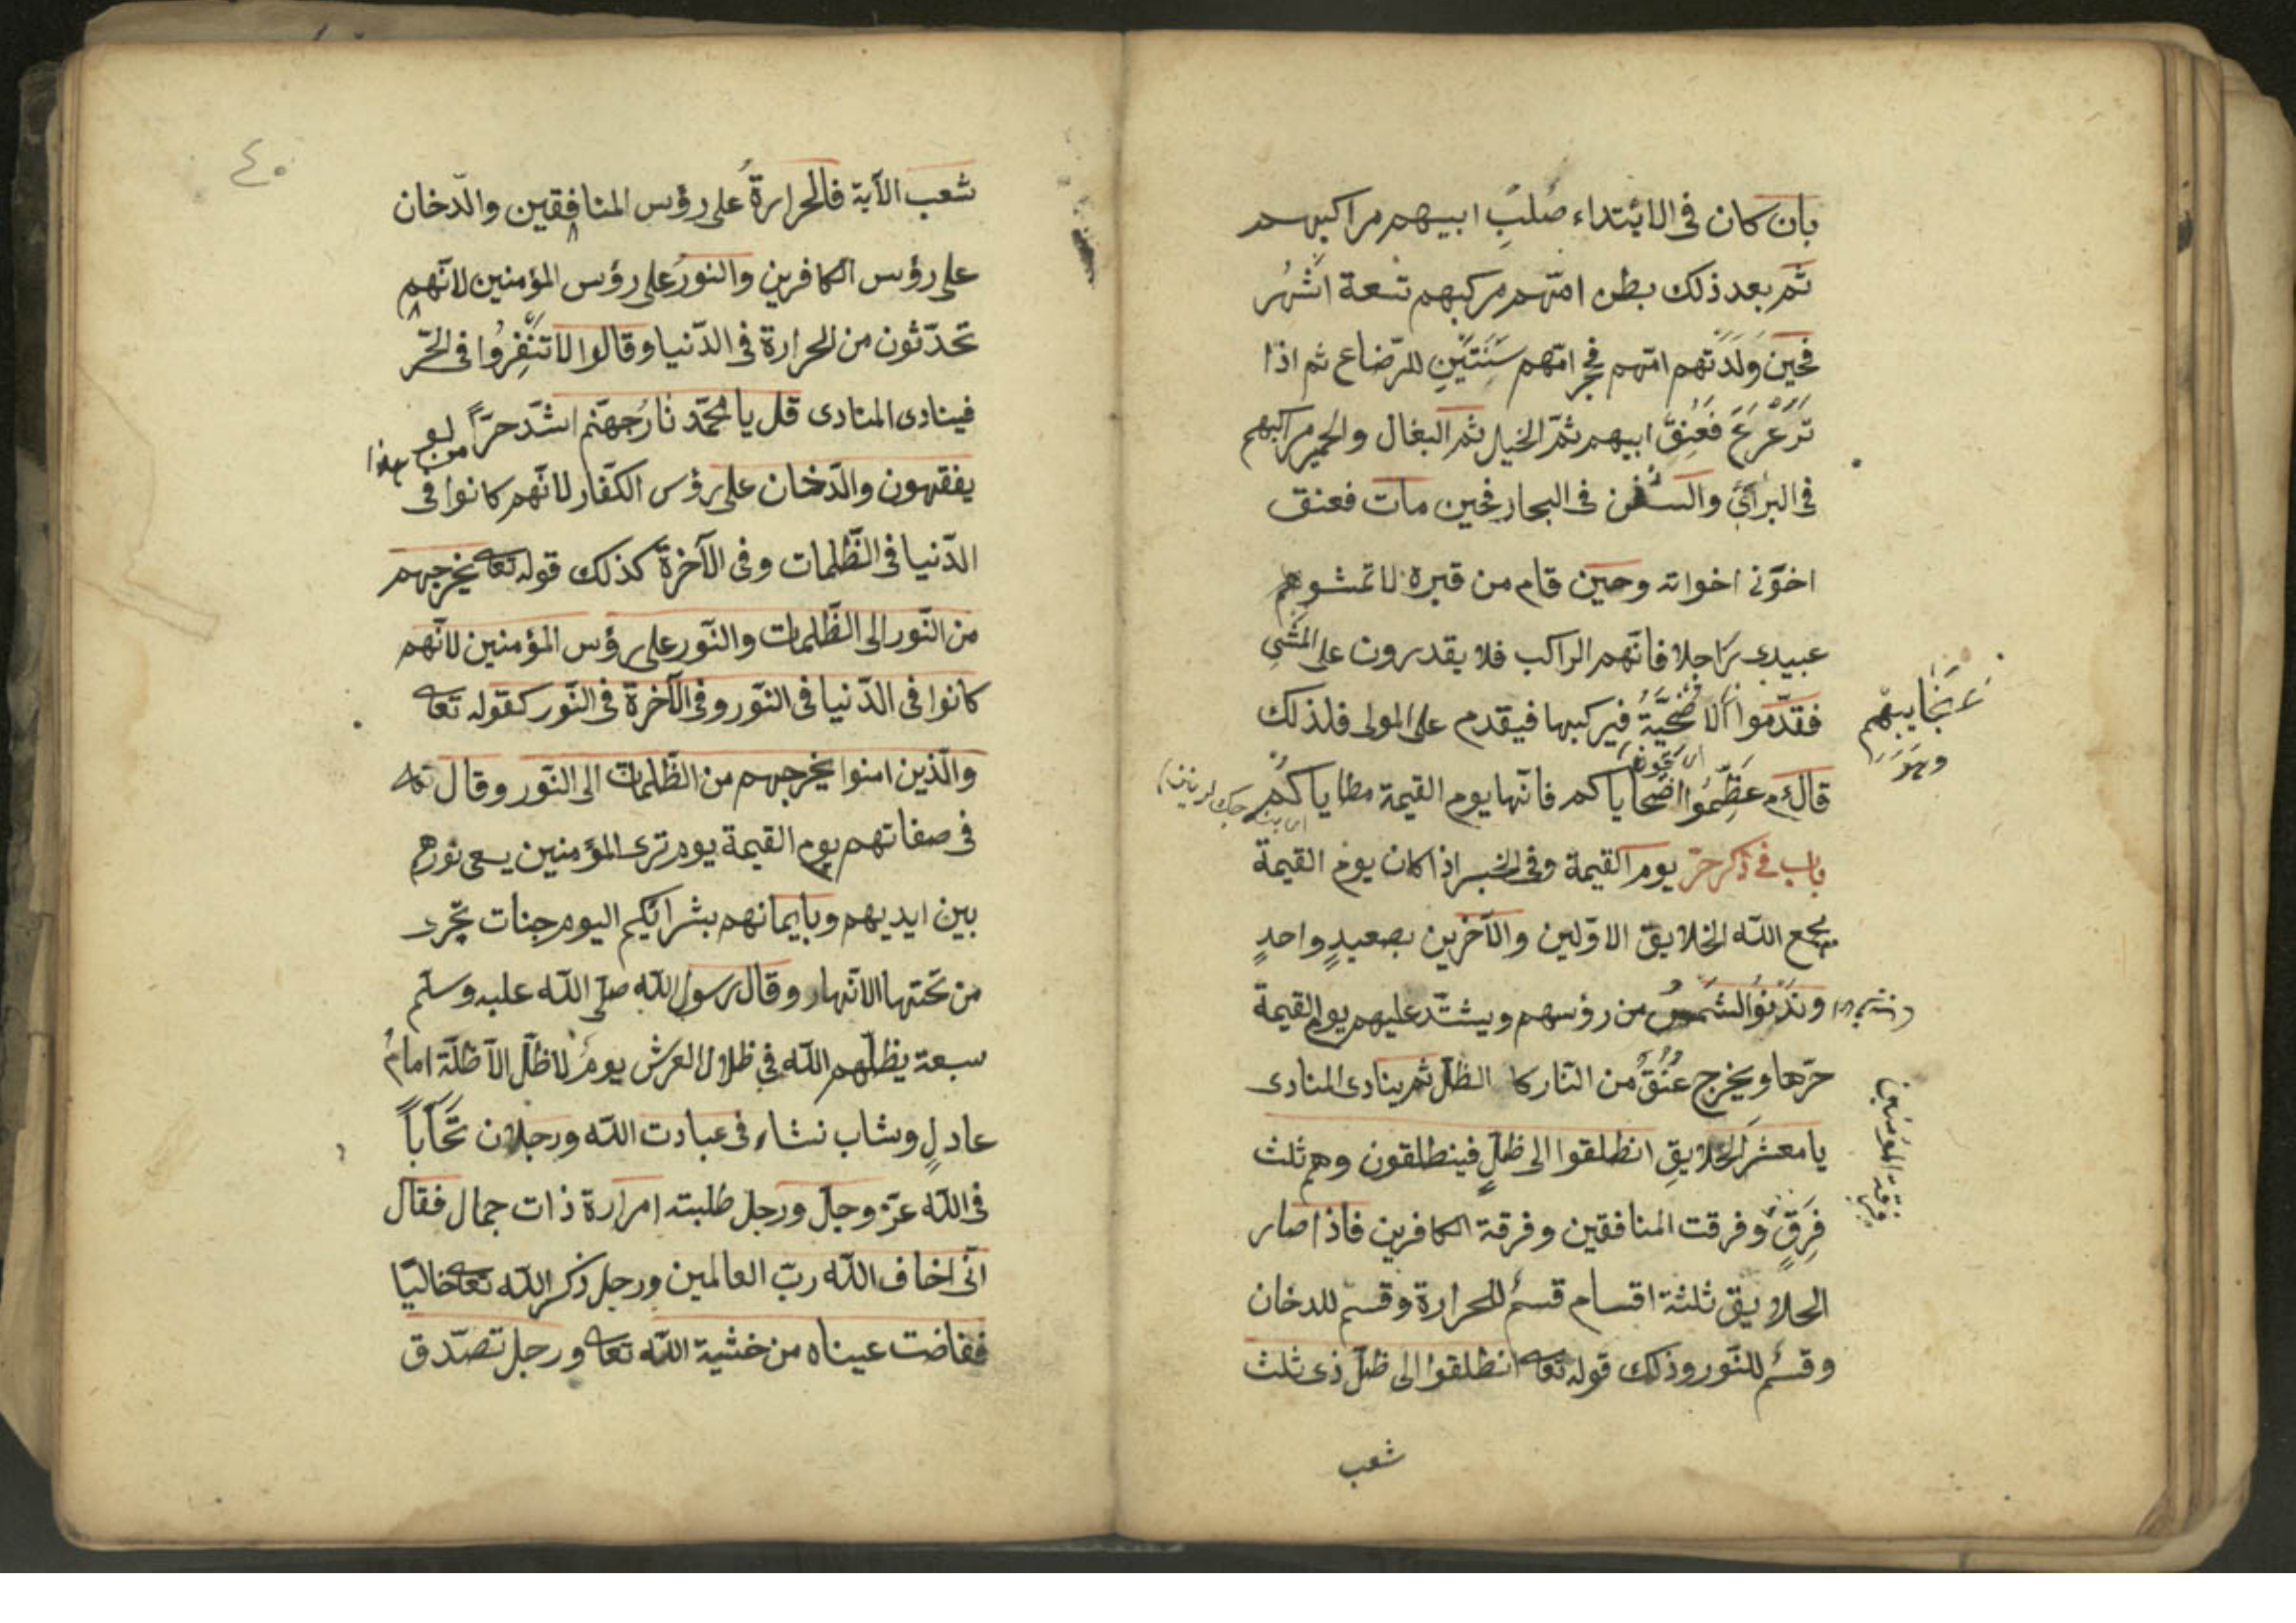 بان كان فى الابتداء صلب ابيهم مراكبهم
ثم بعد ذلك بطن امّهم مركبهم تسعة اشهر
فحين ولدتهم امّهم فحجر امّهم سنتين للرّضاع ثم اذا
ترعرع فعنق ابيهم ثمّ الخيل ثم البغال والحمير مراكبهم
فى البرارى والسفن فى البحار فحين مات فعنق
اخوّنى اخوانه وحين قام من قبره لا تمشوهم
عبيدى راجلا فانّهم الراكب فلا يقدرون على المشى
فقدّموا الاضحيّة فيركبها فيقدم على المولى فلذلك
نجايبهم
قال عم عظّموا اضحاياكم فانّها يوم القيمة مطاياكم
باب فى ذكر حرّ يوم القيمة وفى الخبر اذا كان يوم القيمة
يجمع اللّه الخلايق الاوّلين والآخرين بصعيدٍ واحدٍ
وتدنو الشمس من رؤسهم ويشتدّ عليهم يوم القيمة
حرّها ويخرج عنق من النار كا الظلّ ثم ينادى المنادى
يا معشر الخلايقِ انطلقوا الى ظلٍّ فينطلقون وهم ثلث
فِرَقٍ وفرقت المنافقين وفرقة الكافرين فاذا صار
فرقة المؤمنين
الخلايق ثلثة اقسام قسم للحرارة وقسم للدخان
وقسم للنّور وذلك قوله تعا انطلقوا الى ظلّ ذى ثلث
شعب
٤٠
شعب الآية فالحرارة على رؤس المنافقين والدّخان
على رؤس الكافرين والنور على رؤس المؤمنين لانّهم
تحدّثون من الحرارة فى الدّنيا وقالوا لا تنفروا فى الحّر
فينادى المنادى قل يا محمّد نار جهنّم اشدّ حرّاً من هذا لو
يفقهون والدّخان على رؤس الكفّار لانّهم كانوا فى
الدّنيا فى الظّلمات وفى الآخرة كذلك قوله تعا يخرجهم
من النّور الى الظّلمات والنّور على رؤس المؤمنين لانّهم
كانوا فى الدّنيا فى النّور وفى الآخرة فى النّور كقوله تعا
والّذين امنوا يخرجهم من الظّلمات الى النّور وقال تعا
فى صفاتهم يوم القيمة يوم ترى المؤمنين يسعى نورهم
بين ايديهم وبايمانهم بشرايكم اليوم جنات تجرى
من تحتها الانهار وقال رسول اللّه صلّى اللّه عليه وسلّم
سبعة يظلّهم اللّه فى ظلال العرش يوم لا ظلّ الّا ظلّه امام
عادلٍ وشاب نشاء فى عبادت اللّه ورجلان تحاباً
فى اللّه عزّ وجلّ ورجل طلبته امرارة ذات جمال فقال
انّى اخاف اللّه ربّ العالمين ورجل ذكر اللّه تعا خاليّا
ففاضت عيناه من خشية اللّه تعا ورجل تصدّق